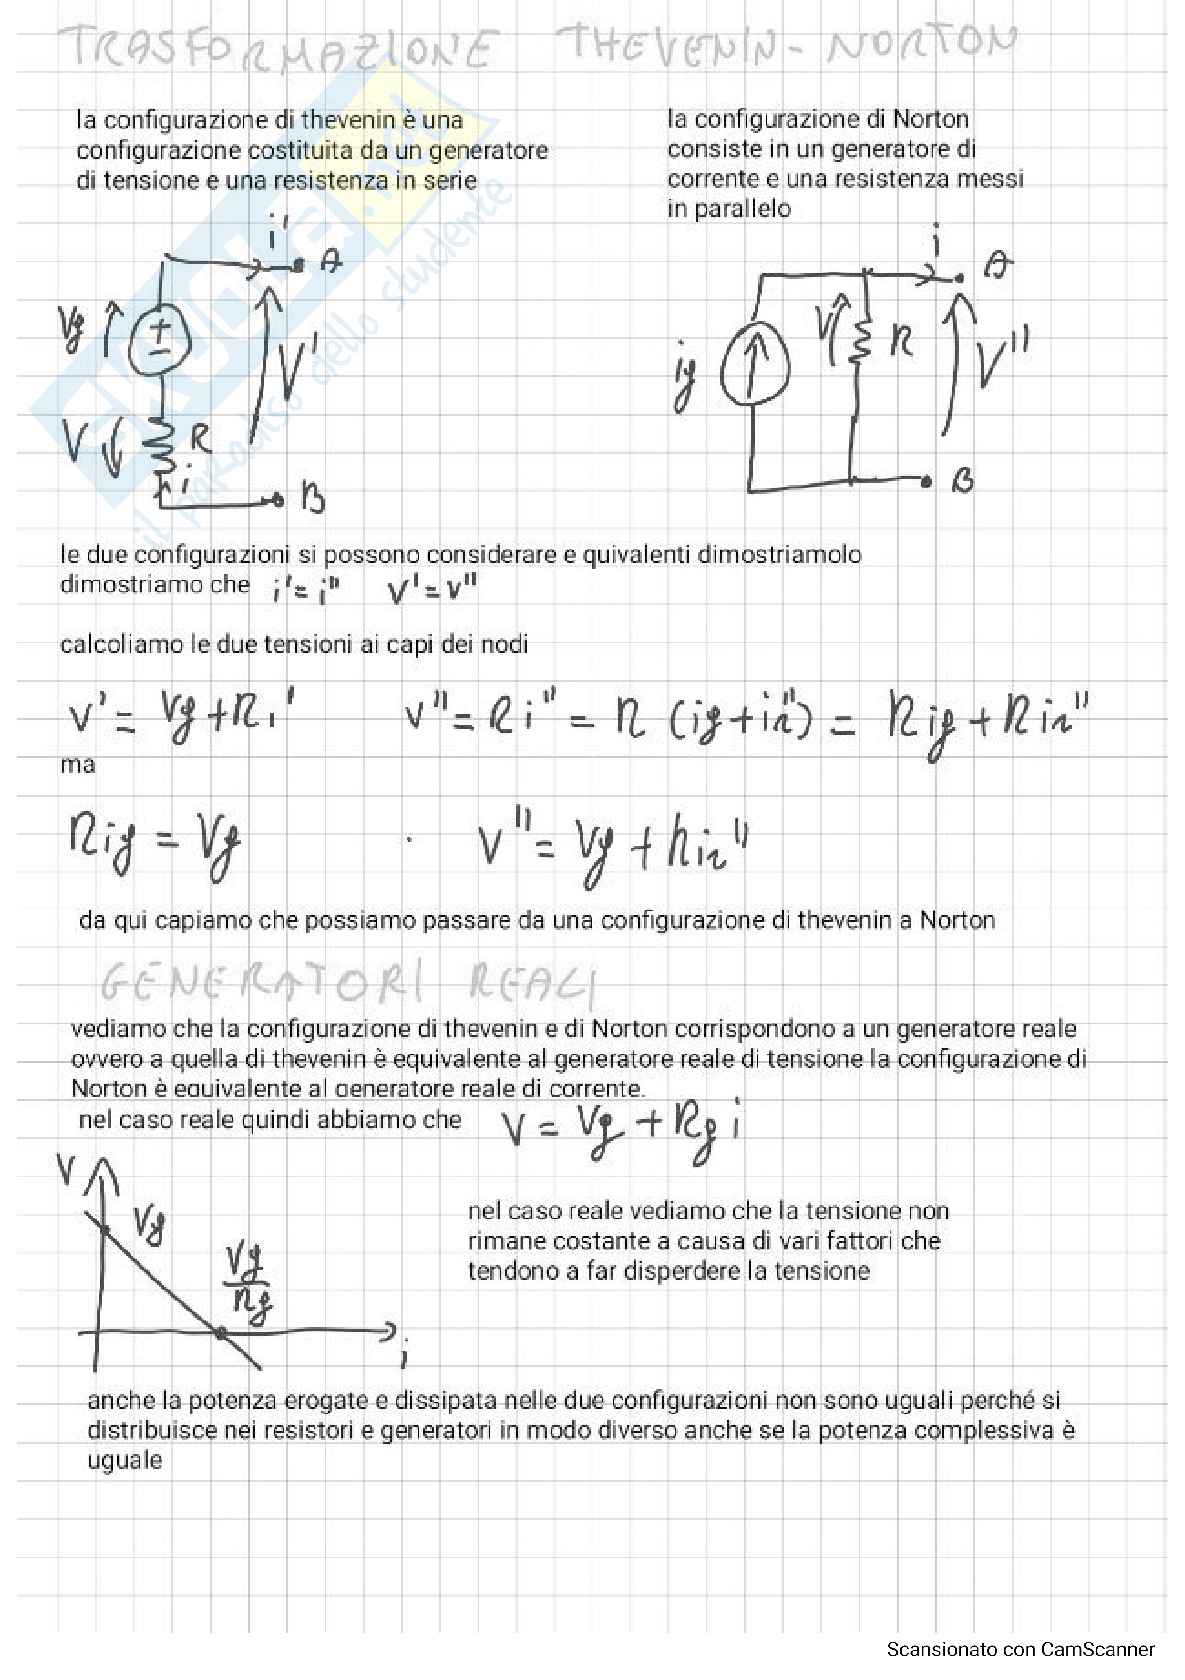 TRASFORMAZIONE THEVENIN-NORTON
la configurazione di thevenin è una
configurazione costituita da un generatore
di tensione e una resistenza in serie
la configurazione di Norton
consiste in un generatore di
corrente e una resistenza messi
in parallelo
i'
A
Vg
+
−
V'
V
R
i
B
i
A
ig
V
R
V''
B
SKUOLA.net
il paradiso dello studente
le due configurazioni si possono considerare e quivalenti dimostriamolo
dimostriamo che i'=i'' V'=V''
calcoliamo le due tensioni ai capi dei nodi
V' = Vg+Ri' V''=Ri''= R (ig+ir'') = Rig + Rir''
ma
Rig = Vg . V''= Vg + Rir''
da qui capiamo che possiamo passare da una configurazione di thevenin a Norton
GENERATORI REALI
vediamo che la configurazione di thevenin e di Norton corrispondono a un generatore reale
ovvero a quella di thevenin è equivalente al generatore reale di tensione la configurazione di
Norton è equivalente al generatore reale di corrente.
nel caso reale quindi abbiamo che V = Vg + Rg i
V
Vg
Vg
Rg
i
nel caso reale vediamo che la tensione non
rimane costante a causa di vari fattori che
tendono a far disperdere la tensione
anche la potenza erogate e dissipata nelle due configurazioni non sono uguali perché si
distribuisce nei resistori e generatori in modo diverso anche se la potenza complessiva è
uguale
Scansionato con CamScanner